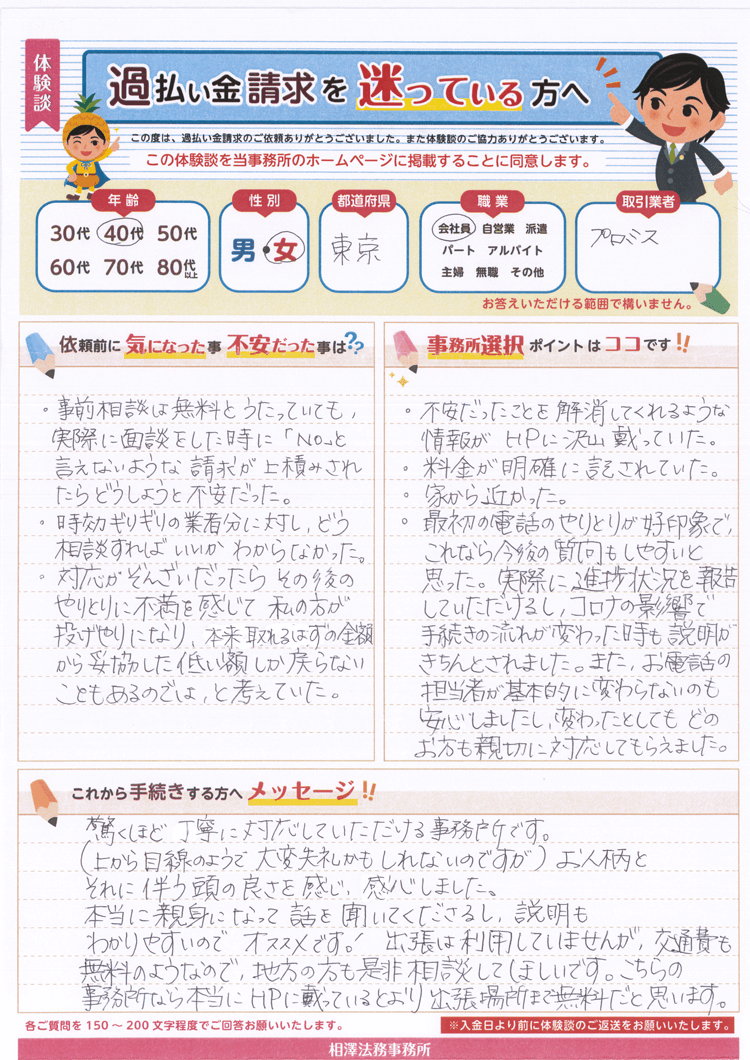 体験談
過払い金請求を迷っている方へ
この度は、過払い金請求のご依頼ありがとうございました。また体験談のご協力ありがとうございます。
この体験談を当事務所のホームページに掲載することに同意します。
年齢
30代 40代 50代
60代 70代 80代以上
性別
男・女
都道府県
東京
職業
会社員 自営業 派遣
パート アルバイト
主婦 無職 その他
取引業者
プロミス
お答えいただける範囲で構いません。
依頼前に気になった事 不安だった事は??
・事前相談は無料とうたっていても、
実際に面談をした時に「NO」と
言えないような請求が上積みされ
たらどうしようと不安だった。
・時効ギリギリの業者分に対し、どう
相談すればいいかわからなかった。
・対応がぞんざいだったらその後の
やりとりに不満を感じて私の方が
投げやりになり、本来取れるはずの金額
から妥協した低い額しか戻らない
こともあるのでは、と考えていた。
事務所選択ポイントはココです!!
・不安だったことを解消してくれるような
情報がHPに沢山載っていた。
・料金が明確に記されていた。
・家から近かった。
・最初の電話のやりとりが好印象で、
これなら今後の質問もしやすいと
思った。実際に進捗状況を報告
していただけるし、コロナの影響で
手続きの流れが変わった時も説明が
きちんとされました。また、お電話の
担当者が基本的に変わらないのも
安心しましたし、変わったとしてもどの
お方も親切に対応してもらえました。
これから手続きする方へメッセージ!!
驚くほど丁寧に対応していただける事務所です。
(上から目線のようで大変失礼かもしれないのですが)お人柄と
それに伴う頭の良さを感じ、感心しました。
本当に親身になって話を聞いてくださるし、説明も
わかりやすいのでオススメです!出張は利用していませんが、交通費も
無料のようなので、地方の方も是非相談してほしいです。こちらの
事務所なら本当にHPに載っているとおり出張場所まで無料だと思います。
各ご質問を150～200文字程度でご回答お願いいたします。
※入金日より前に体験談のご返送をお願いいたします。
相澤法務事務所